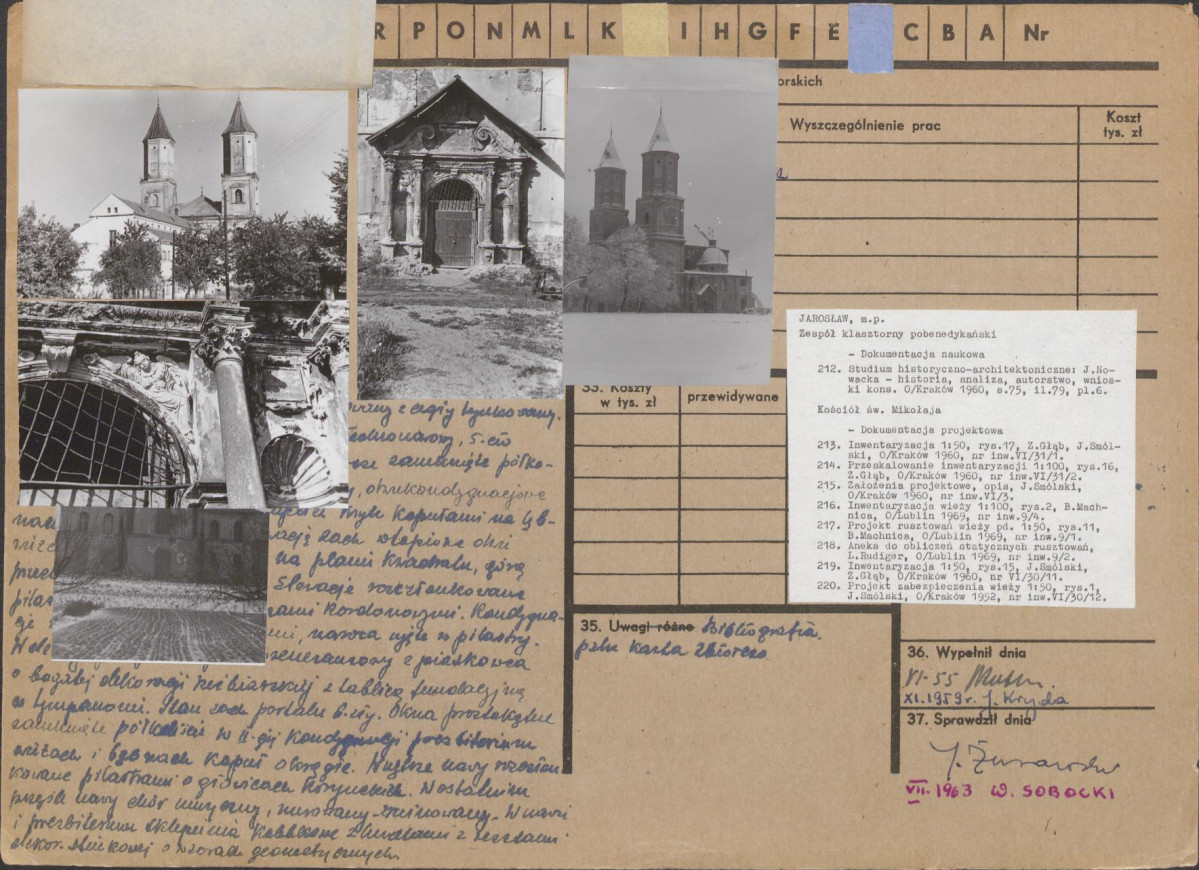 R P O N M L K I H G F E C B A Nr
orskich
Wyszczególnienie prac
Koszt
tys. zł
JAROSŁAW, m.p.
Zespół klasztorny pobenedykański
- Dokumentacja naukowa
212. Studium historyczno-architektoniczne: J.No-
wacka - historia, analiza, autorstwo, wnios-
ki kons. O/Kraków 1960, s.75, il.79, pl.6.
Kościół św. Mikołaja
- Dokumentacja projektowa
213. Inwentaryzacja 1:50, rys.17, Z.Głąb, J.Smól-
ski, O/Kraków 1960, nr inw.VI/31/1.
214. Przeskalowanie inwentaryzacji 1:100, rys.16,
Z.Głąb, O/Kraków 1960, nr inw.VI/31/2.
215. Założenia projektowe, opis, J.Smólski,
O/Kraków 1960, nr inw.VI/3.
216. Inwentaryzacja wieży 1:100, rys.2, B.Mach-
nica, O/Lublin 1969, nr inw.9/4.
217. Projekt rusztowań wieży pd. 1:50, rys.11,
B.Machnica, O/Lublin 1969, nr inw.9/1.
218. Aneks do obliczeń statycznych rusztowań,
L.Rudiger, O/Lublin 1969, nr inw.9/2.
219. Inwentaryzacja 1:50, rys.15, J.Smólski,
Z.Głąb, O/Kraków 1960, nr VI/30/11.
220. Projekt zabezpieczenia wieży 1:50, rys.1,
J.Smólski, O/Kraków 1952, nr inw.VI/30/12.
33. Koszty
w tys. zł
przewidywane
z cegły tynkowany.
5-cio
zamknięte półko-
kopułami na tyb-
na planie kwadratu, górą
Elewacje rozczłonkowane
kordonowymi. Kondygna-
nawa ujęte w pilastry.
z piaskowca
o bogatej dekoracji rzeźbiarskiej z tablicą fundacyjną
w tympanonie. Stan zach portalu b. zły. Okna prostokątne
zamknięte półkoliście w II-giej kondygnacji prezbiterium
wieżach i tyburach kopuł okrągłe. Wnętrze nawy rozczłon
kowane pilastrami o głowicach korynckich. W ostatnim
przęśle nawy chór muzyczny, murowany - zrujnowany. W nawie
i prezbiterium sklepienia kolebkowe z lunetami z resztami
dekor. stiukowej o wzorach geometrycznych.
35. Uwagi różne Bibliografia.
patrz karta zbiorcza
36. Wypełnił dnia
VI-55
XI.1959r. J. Kryda
37. Sprawdził dnia
VII.1963 W. SOBOCKI